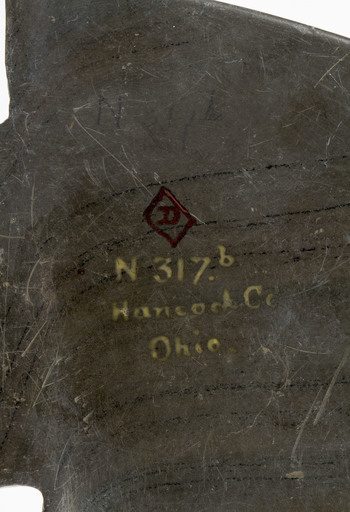 R
N 317.b
Hancock Co
Ohio.